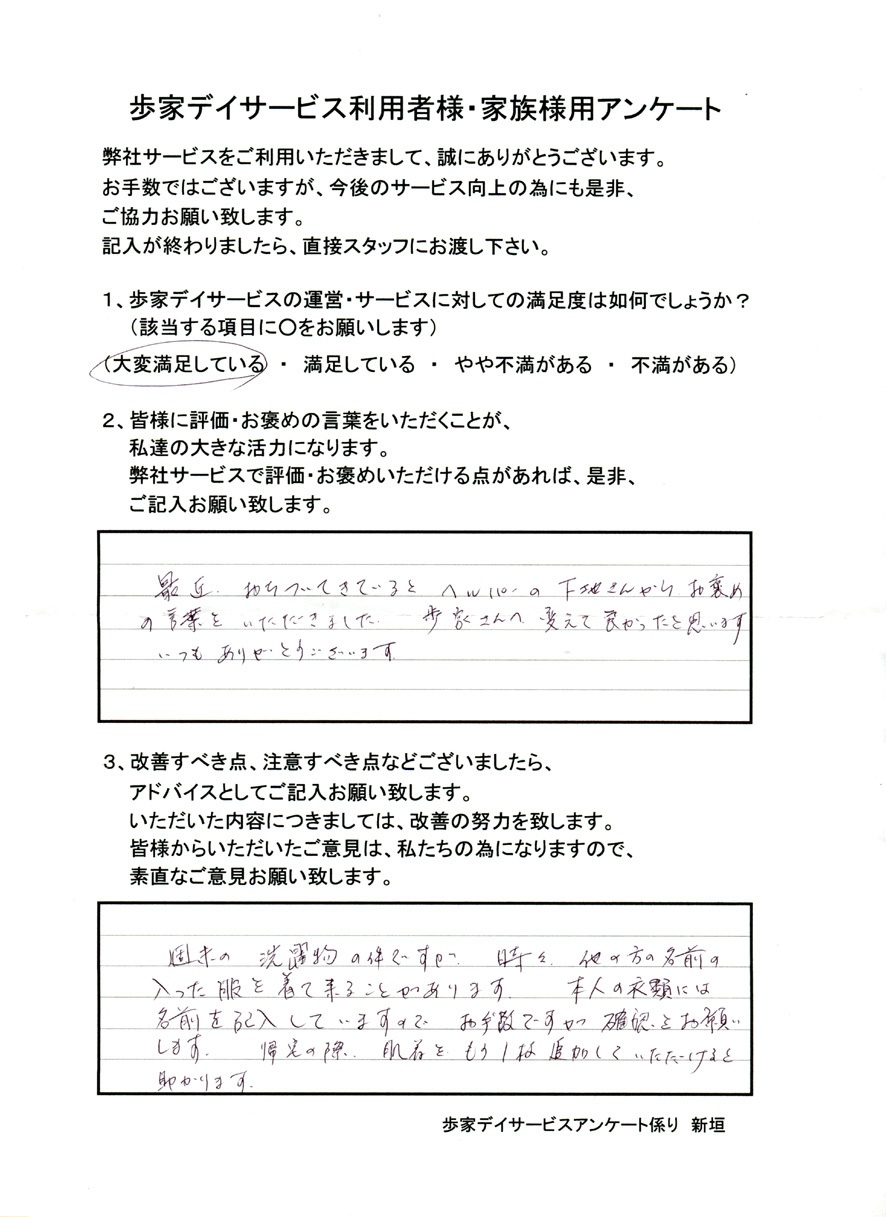 歩家デイサービス利用者様・家族様用アンケート
弊社サービスをご利用いただきまして、誠にありがとうございます。
お手数ではございますが、今後のサービス向上の為にも是非、
ご協力お願い致します。
記入が終わりましたら、直接スタッフにお渡し下さい。
１、歩家デイサービスの運営・サービスに対しての満足度は如何でしょうか？
（該当する項目に〇をお願いします）
（大変満足している ・ 満足している ・ やや不満がある ・ 不満がある）
２、皆様に評価・お褒めの言葉をいただくことが、
私達の大きな活力になります。
弊社サービスで評価・お褒めいただける点があれば、是非、
ご記入お願い致します。
最近、おちついてきていると ヘルパーの 下地さんから お褒め
の言葉を いただきました。 歩家さんへ 変えて良かったと思います
いつも ありがとうございます。
３、改善すべき点、注意すべき点などございましたら、
アドバイスとしてご記入お願い致します。
いただいた内容につきましては、改善の努力を致します。
皆様からいただいたご意見は、私たちの為になりますので、
素直なご意見お願い致します。
週末の 洗濯物の件ですが、 時々、他の方の名前の
入った服を着て来ることがあります。 本人の衣類には
名前を記入していますので お手数ですが 確認をお願い
します。 帰宅の際、 肌着を もう1枚 追加して いただけると
助かります。
歩家デイサービスアンケート係り 新垣